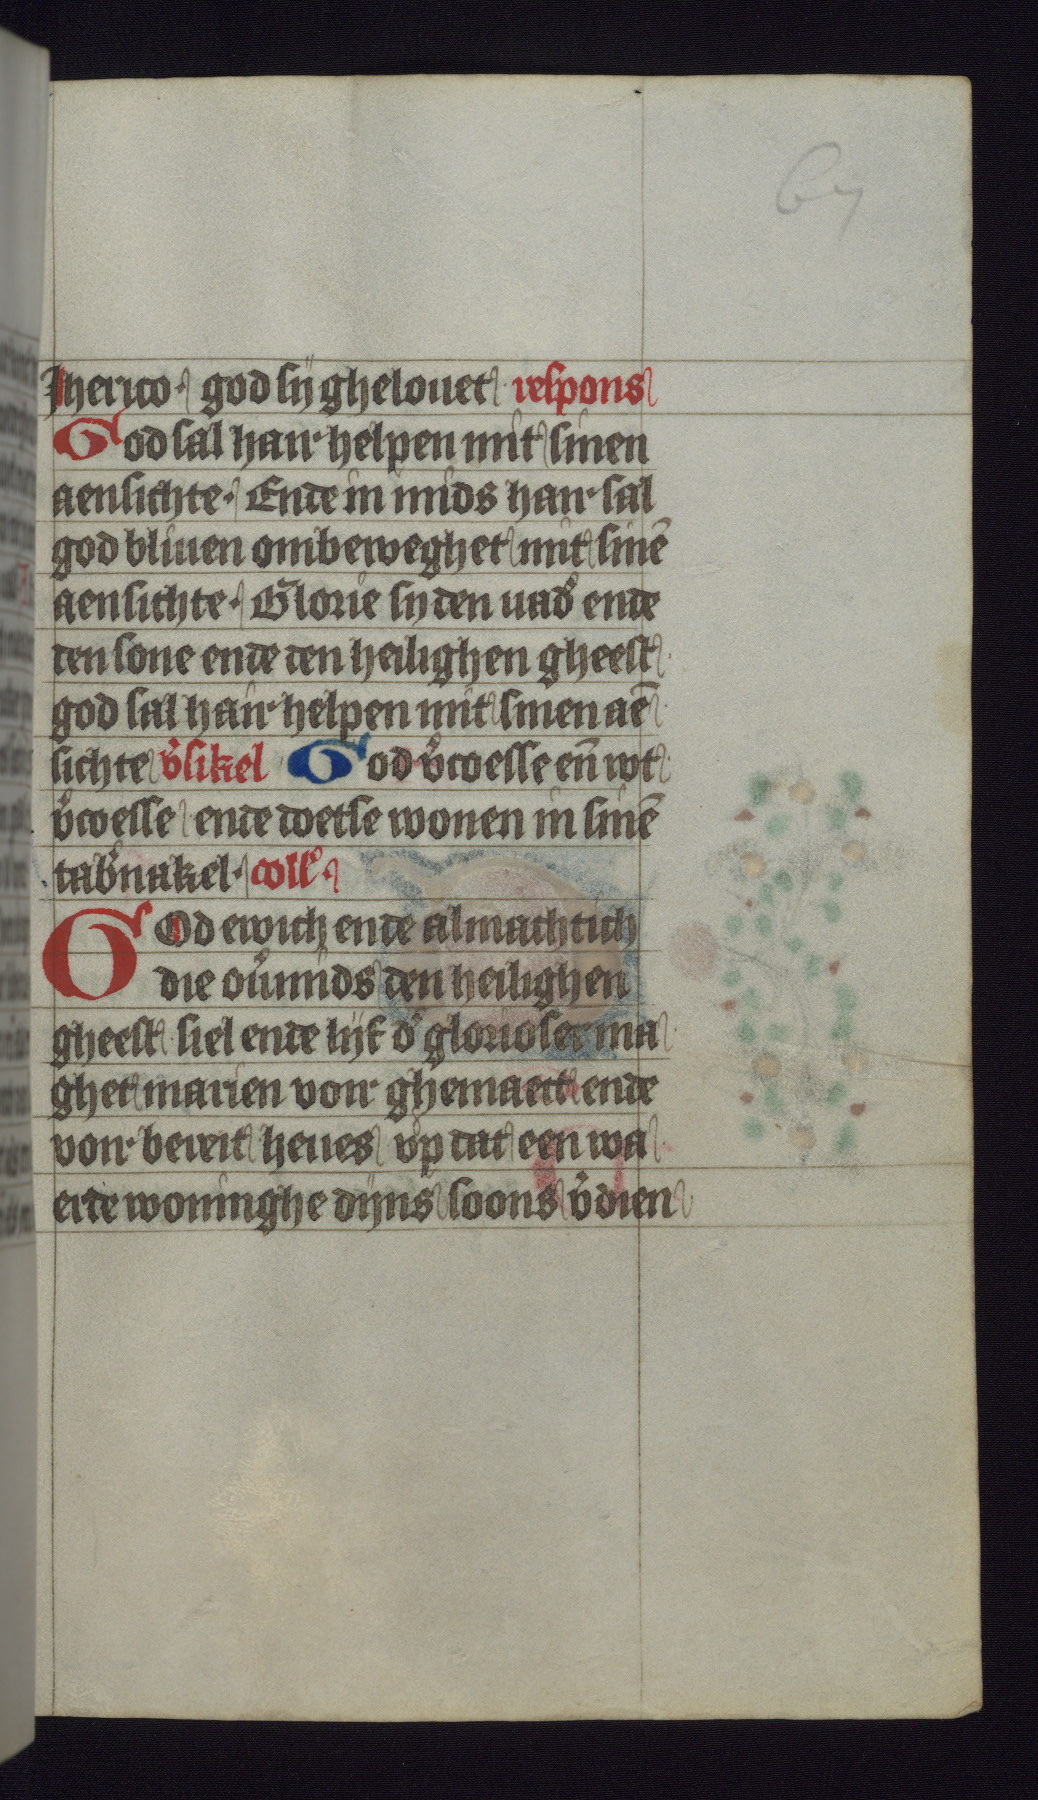 67
Jherico· god sij ghelouet respons
God sal hair helpen mit sinen
aensichte· Ende in mids hair sal
god bliuen ombeweghet mit sinē
aensichte· Glorie sy den vad͛ ende
den sone ende den heilighen gheest
god sal hair helpen mit sinen aē
sichte v͛sikel God v͛coesse en̄ wt
v͛coesse ende doetse wonen in sinē
tab͛nakel· coll͛
GOd ewich ende almachtich
die ou͛mids den heilighen
gheest siel ende lijf d͛ glorioser ma
ghet marien voir ghemaect ende
voir bereit heues vp dat een wa
erde woninghe dijns soons v͛dien